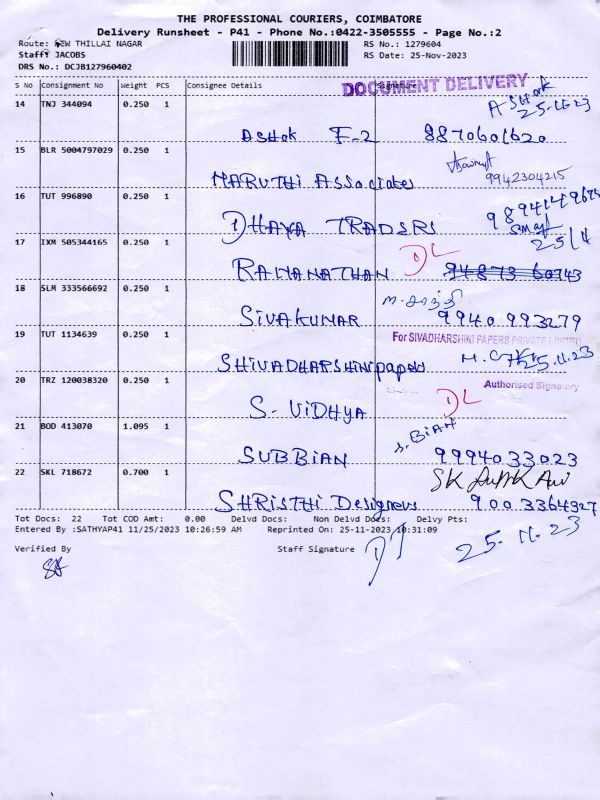 THE PROFESSIONAL COURIERS, COIMBATORE
Delivery Runsheet - P41 - Phone No.:0422-3505555 - Page No.:2
Route: NEW THILLAI NAGAR RS No.: 1279604
Staff: JACOBS RS Date: 25-Nov-2023
DRS No.: DCJB127960402
S No Consignment No Weight PCS Consignee Details Signature
DOCUMENT DELIVERY
14 TNJ 344094 0.250 1 AShok 25.11.23
AShok F-2 8870601620
15 BLR 5004797029 0.250 1
MARUTHi ASSociates 9942304215
16 TUT 996890 0.250 1
DHAYA TRADERS 25/11
17 IXM 505344165 0.250 1 DL
RAMANATHAN 94873 60743
18 SLM 333566692 0.250 1 ந. சாந்தி
SivAKUMAR 9940 993279
19 TUT 1134639 0.250 1 For SIVADHARSHINI PAPERS PRIVATE LIMITED
SHiVADHARSHiNi papers 25.11.23
20 TRZ 120038320 0.250 1 Authorised Signatory
S. ViDHYA DL
21 BOD 413070 1.095 1 S. BiAN
SUBBiAN 9994033023
22 SKL 718672 0.700 1
SHRiSTHi Designers 9003364327
Tot Docs: 22 Tot COD Amt: 0.00 Delvd Docs: Non Delvd Docs: Delvy Pts:
Entered By :SATHYAP41 11/25/2023 10:26:59 AM Reprinted On: 25-11-2023 10:31:09
25.11.23
Verified By Staff Signature